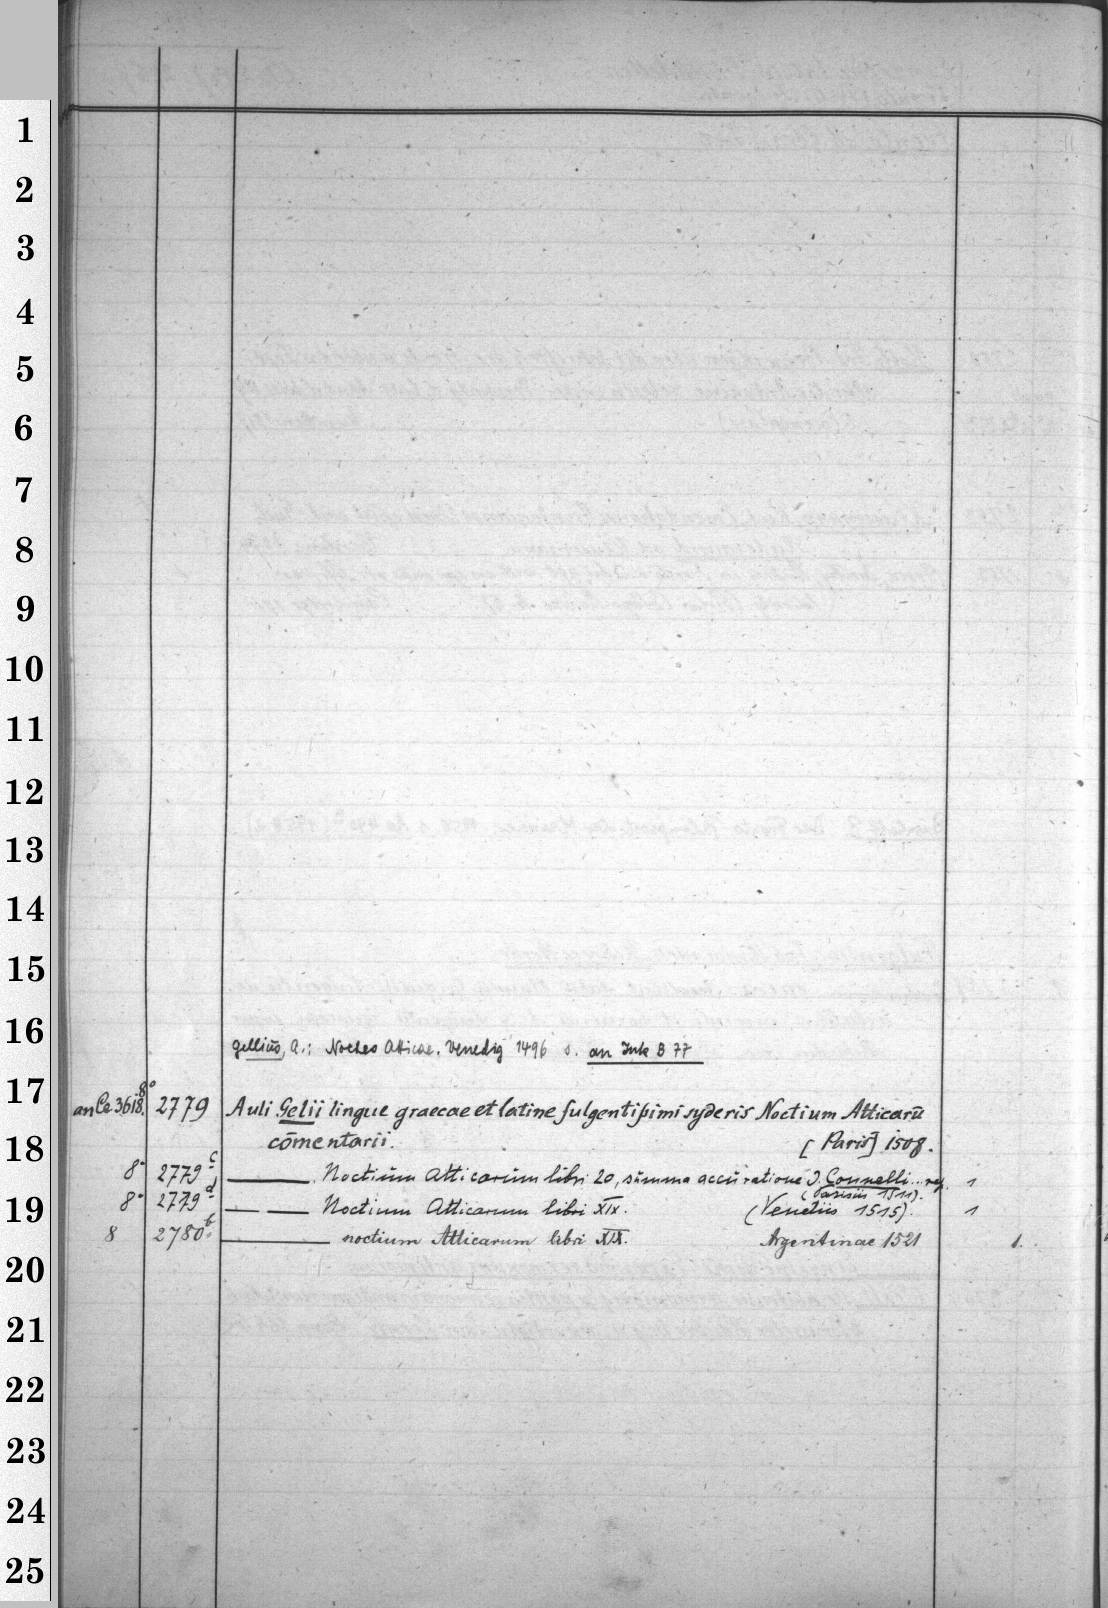 1
2
3
4
5
6
7
8
9
10
11
12
13
14
15
16
Gellius, A.: Noctes Atticae. Venedig 1496 s. an Ink B 77
17
an Ce 3618. 8° 2779 Auli Gelii lingue graecae et latine fulgentißimi syderis Noctium Atticarū
18
cōmentarii. [Paris] 1508.
8° 2779c ——— Noctium Atticarum libri 20, summa accuratione J. Connelli... 1
(Parisiis 1511).
19
8° 2779d — — Noctium Atticarum libri XIX. (Venetiis 1515). 1
8 2780b ——— noctium Atticarum libri XIX. Argentinae 1521 1.
20
21
22
23
24
25